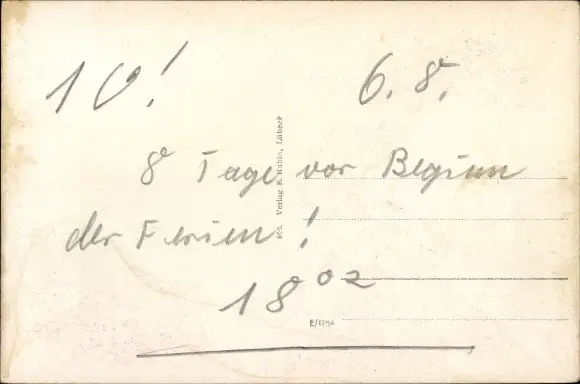 10! 6.8.
8 Tage vor Beginn
der Ferien!
18 02
Verlag R. Rühle, Lübeck